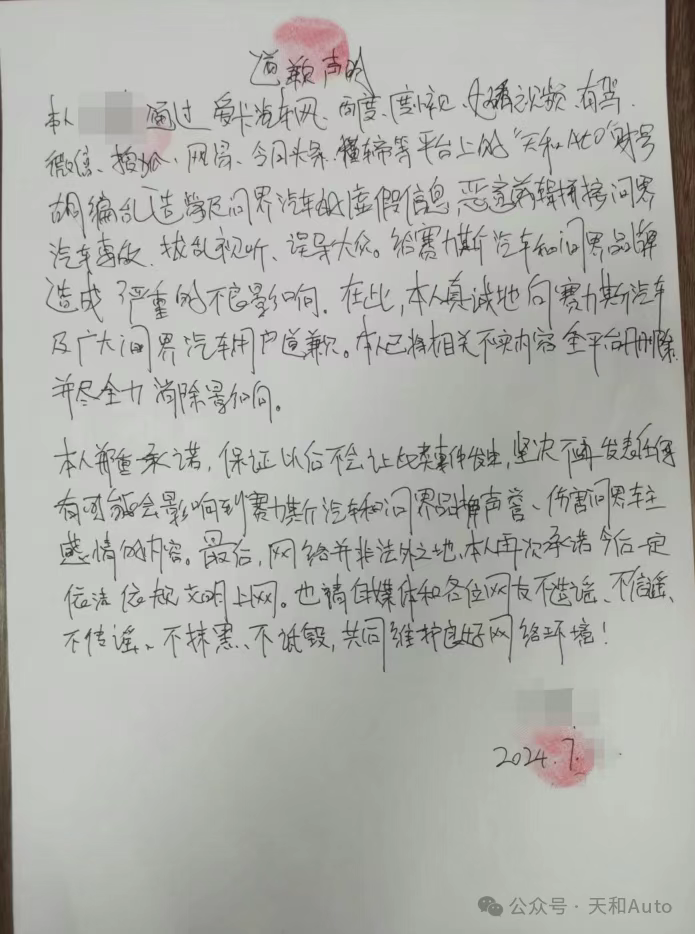 道歉声明
本人 通过 爱卡汽车网、百度、度小视、好看视频、有驾、
微信、搜狐、网易、今日头条、懂车帝等平台上的"天和Auto"账号
胡编乱造赛及问界汽车的虚假信息,恶意剪辑拼接问界
汽车事故、扰乱视听、误导大众。给赛力斯汽车和问界品牌
造成严重的不良影响。在此,本人真诚地向赛力斯汽车
及广大问界汽车用户道歉。本人已将相关不实内容全平台删除
并尽全力消除影响。
本人郑重承诺,保证以后不会让此类事件发生,坚决不再发表任何
有可能会影响到赛力斯汽车和问界品牌声誉、伤害问界车主
感情的内容。最后,网络并非法外之地,本人再次承诺今后一定
依法依规文明上网。也请自媒体和各位网友不造谣、不信谣、
不传谣、不抹黑、不诋毁,共同维护良好网络环境!
2024.7.
公众号·天和Auto